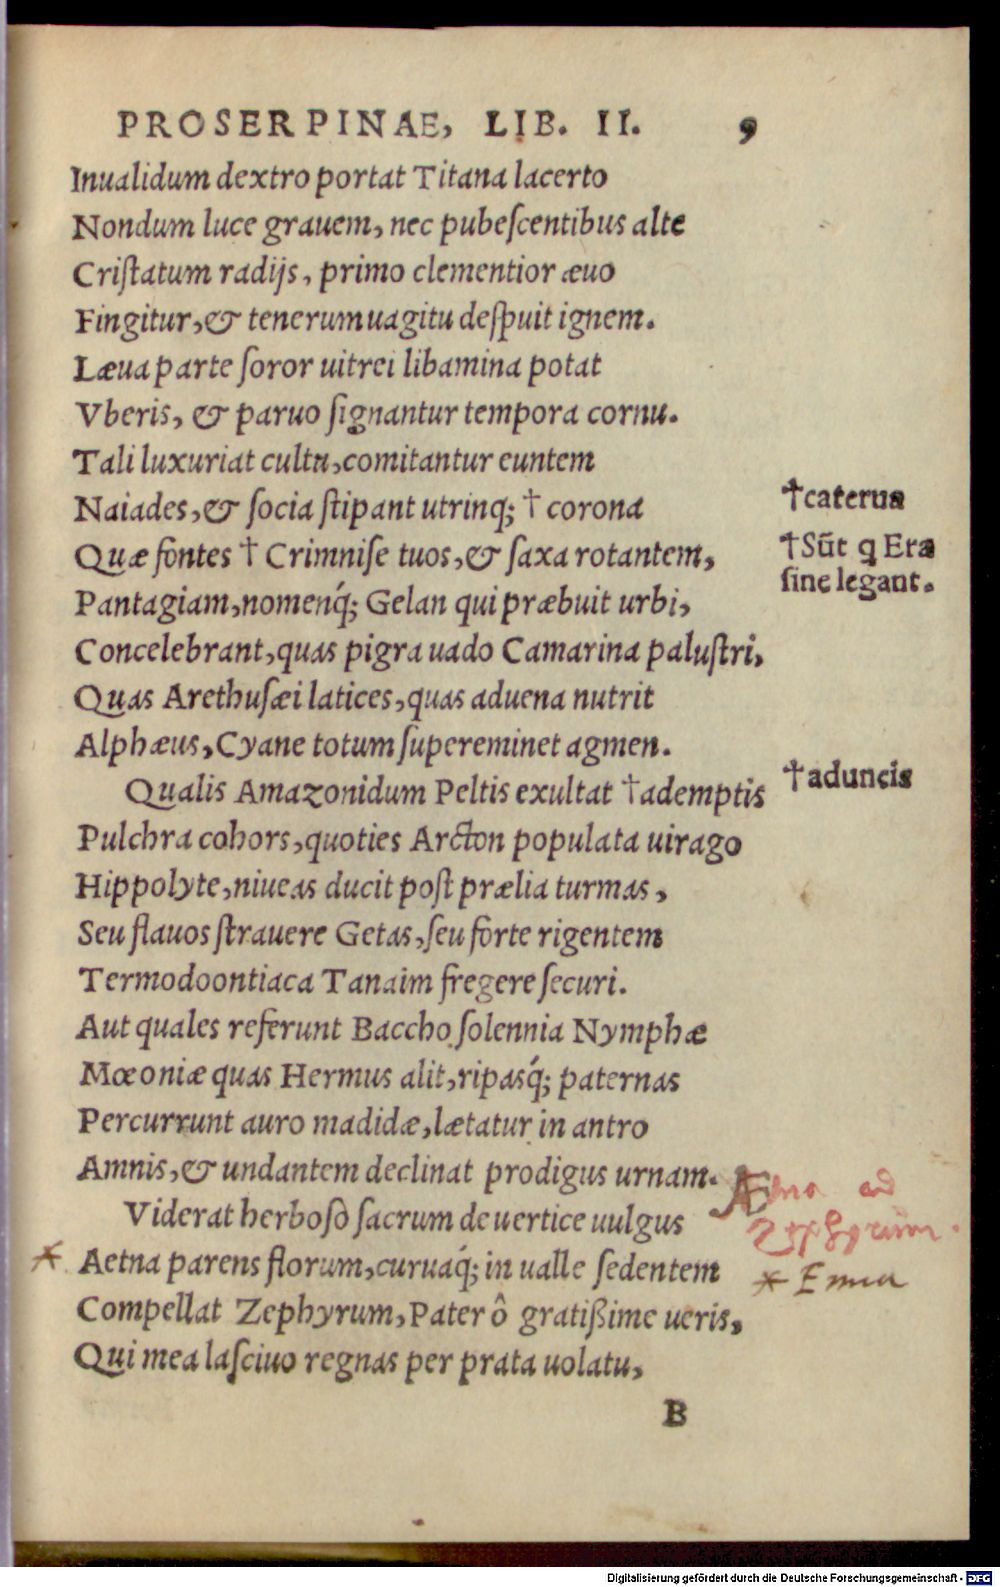 PROSERPINAE, LIB. II. 9
Inualidum dextro portat Titana lacerto
Nondum luce grauem, nec pubeſcentibus alte
Criſtatum radijs, primo clementior æuo
Fingitur, & tenerum uagitu deſpuit ignem.
Læua parte ſoror uitrei libamina potat
Vberis, & paruo ſignantur tempora cornu.
Tali luxuriat cultu, comitantur euntem
Naiades, & ſocia ſtipant utrinq; † corona
†caterua
Quæ fontes † Crimniſe tuos, & ſaxa rotantem,
†Sūt q Era
ſine legant.
Pantagiam, nomenq́; Gelan qui præbuit urbi,
Concelebrant, quas pigra uado Camarina paluſtri,
Quas Arethuſæi latices, quas aduena nutrit
Alphæus, Cyane totum ſupereminet agmen.
Qualis Amazonidum Peltis exultat †ademptis
†aduncis
Pulchra cohors, quoties Arcton populata uirago
Hippolyte, niueas ducit poſt prælia turmas,
Seu flauos ſtrauere Getas, ſeu forte rigentem
Termodoontiaca Tanaim fregere ſecuri.
Aut quales referunt Baccho ſolennia Nymphæ
Mœoniæ quas Hermus alit, ripasq́; paternas
Percurrunt auro madidæ, lætatur in antro
Amnis, & undantem declinat prodigus urnam.
Viderat herboſo ſacrum de uertice uulgus
Ætna ad
Zephyrum.
* Aetna parens florum, curuaq́; in ualle ſedentem
* Enna
Compellat Zephyrum, Pater ô gratißime ueris,
Qui mea laſciuo regnas per prata uolatu,
B
Digitalisierung gefördert durch die Deutsche Forschungsgemeinschaft - DFG